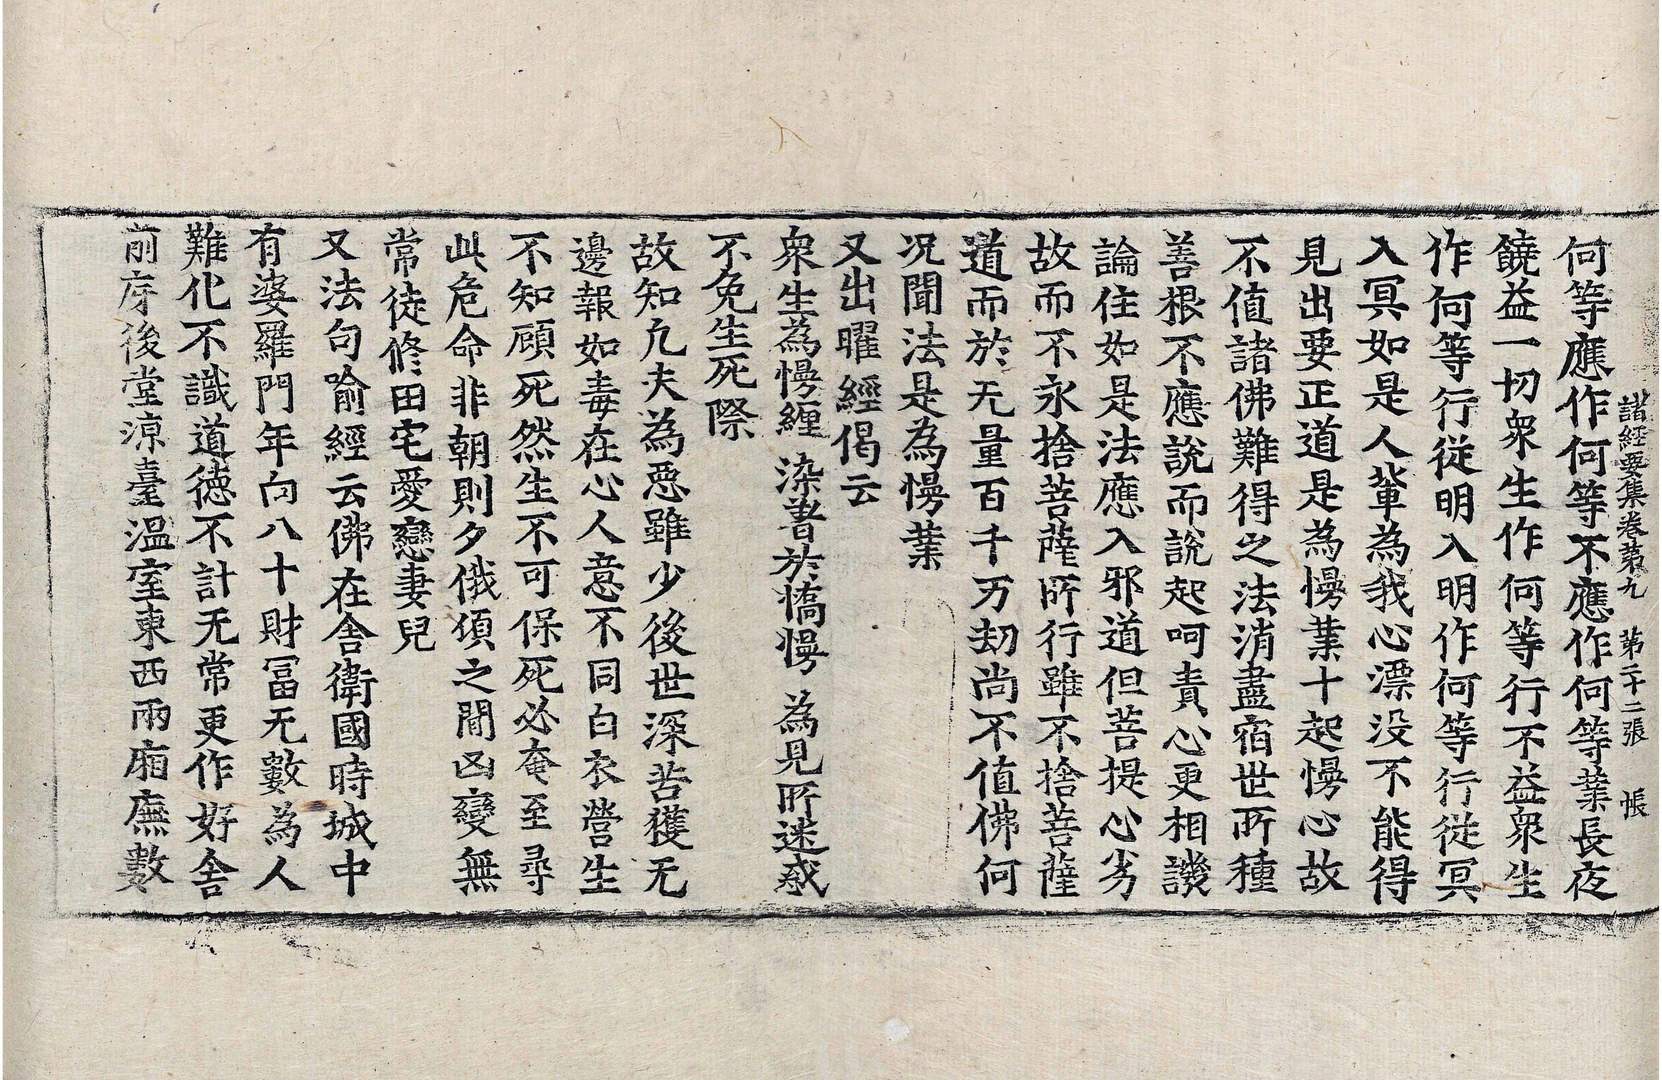 諸經要集卷苐九　第二十二張　帳
何等應作何等不應作何等業長夜
饒益一切衆生作何等行不益衆生
作何等行從明入明作何等行從冥
入冥如是人輩為我心漂没不能得
見出要正道是為慢業十起慢心故
不值諸佛難得之法消盡宿世所種
善根不應說而說起呵責心更相譏
論住如是法應入邪道但菩提心劣
故而不永捨菩薩所行雖不捨菩薩
道而於无量百千万劫尚不值佛何
况聞法是為慢業
又出曜經偈云
衆生為慢纏　染著於憍慢　為見所迷惑
不免生死際
故知凢夫為惡雖少後世深苦獲无
邊報如毒在心人意不同白衣營生
不知顧死然生不可保死必奄至尋
此危命非朝則夕俄須之間凶變無
常徒修田宅愛戀妻兒
又法句喻經云佛在舍衛國時城中
有婆羅門年向八十財冨无數為人
難化不識道德不計无常更作好舎
前庌後堂涼臺溫室東西兩廂廡數